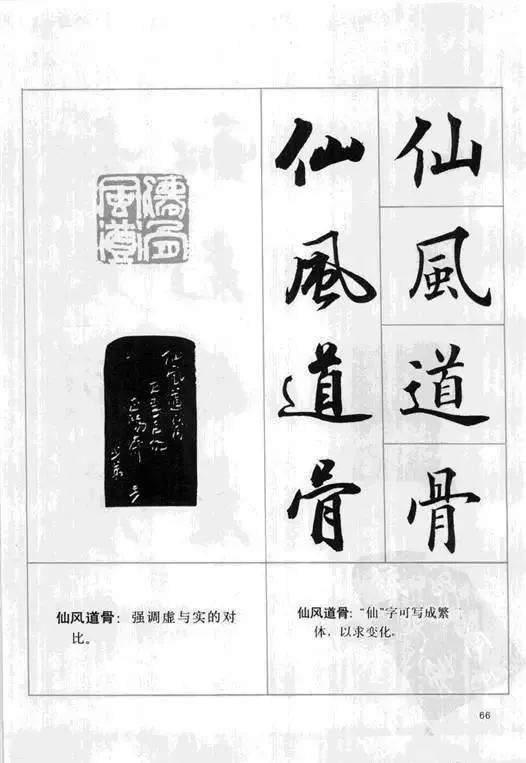 仙風道骨
仙風道骨
仙风道骨：强调虚与实的对
比。
仙风道骨：“仙”字可写成繁
体，以求变化。
66